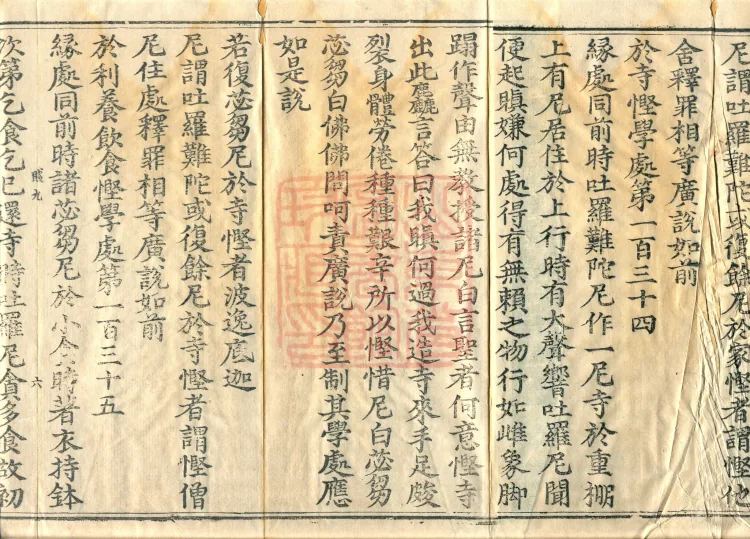 尼謂吐羅難陀或復餘尼於家慳者謂慳他
舍釋罪相等廣說如前
於寺慳學處第一百三十四
緣處同前時吐羅難陀尼作一尼寺於重棚
上有尼居住於上行時有大聲響吐羅尼聞
便起瞋嫌何處得有無賴之物行如雌象脚
蹋作聲由無教授諸尼白言聖者何意慳寺
出此麤言答曰我瞋何過我造寺來手足皴
裂身體勞倦種種艱辛所以慳惜尼白苾芻
苾芻白佛佛問呵責廣說乃至制其學處應
如是說
若復苾芻尼於寺慳者波逸底迦
尼謂吐羅難陀或復餘尼於寺慳者謂慳僧
尼住處釋罪相等廣說如前
於利養飲食慳學處第一百三十五
緣處同前時諸苾芻尼於小食時著衣持鉢
賤九 六
次第乞食乞已還寺時吐羅尼貪多食故初